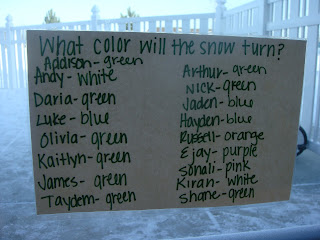 What color will the snow turn?
Addison-green
Andy-White
Daria-green
Luke-blue
Olivia-green
Kaitlyn-green
James-green
Taydem-green
Arthur-green
Nick-green
Jaden-blue
Hayden-blue
Russell-orange
Ejay-purple
Sonali-pink
Kiran-white
Shane-green